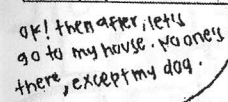 ok! then after, let's
go to my house. No one's
there, except my dog.